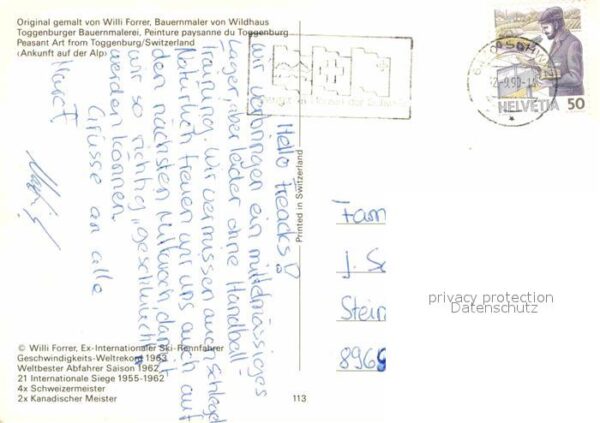 Original gemalt von Willi Forrer, Bauernmaler von Wildhaus
Toggenburger Bauernmalerei, Peinture paysanne du Toggenburg
Peasant Art from Toggenburg/Switzerland
(Ankunft auf der Alp)
Hello Freacks!
Wir verbringen ein mittelmässiges
Lager, aber leider ohne Handball
training. Wir vermissen auch
Natürlich freuen wir uns auch auf
den nächsten Mittwoch, damit
wir so richtig „geschlaucht“
werden können.
Grüsse an alle
Marc F
Printed in Switzerland
HELVETIA 50
Fam
J. Sc
Stein
8969
privacy protection
Datenschutz
© Willi Forrer, Ex-Internationaler Ski-Rennfahrer
Geschwindigkeits-Weltrekord 1963
Weltbester Abfahrer Saison 1962
21 Internationale Siege 1955-1962
4x Schweizermeister
2x Kanadischer Meister
113